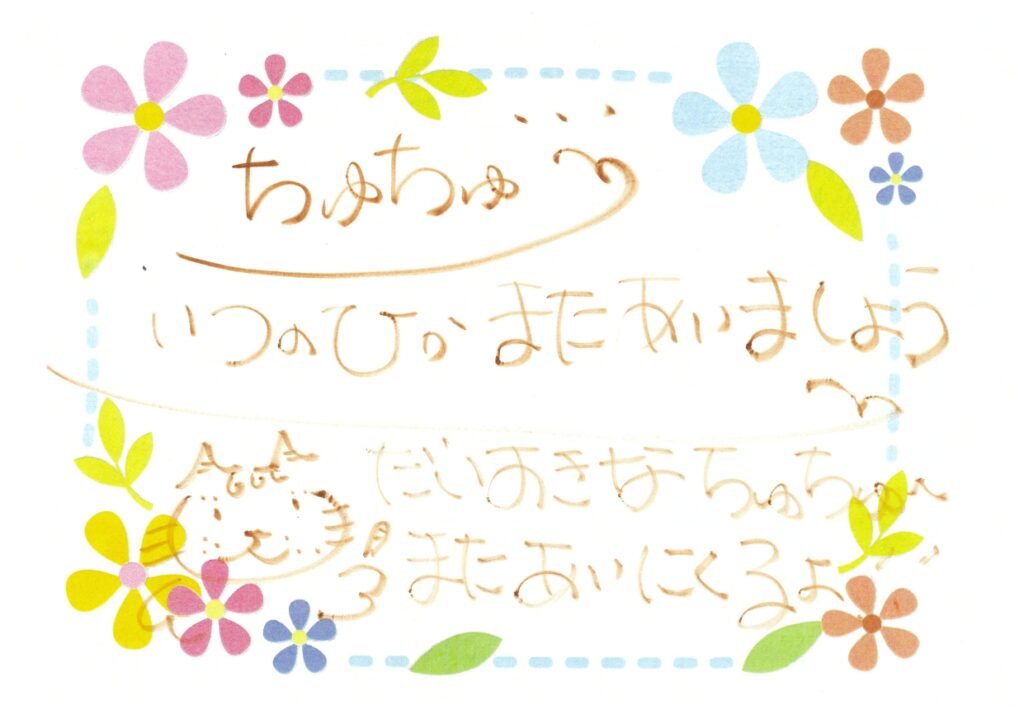 ちゅちゅ
いつのひか またあいましょう
だいすきな ちゅちゅへ
またあいにくるよ